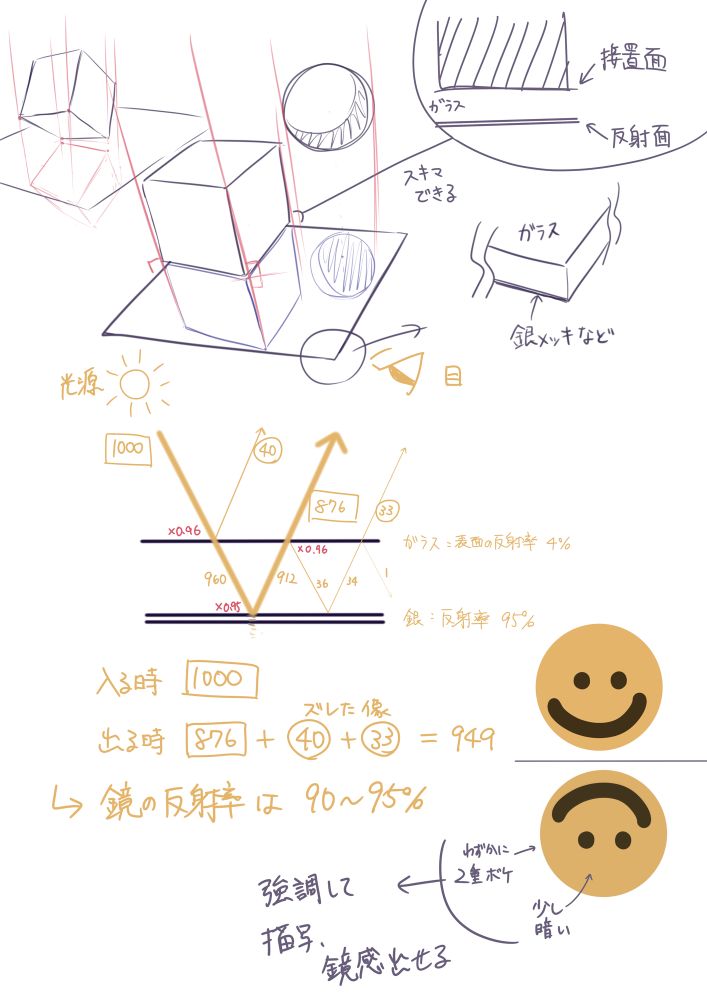 接置面
ガラス
反射面
スキマ
できる
ガラス
銀メッキなど
光源
目
1000
40
876
33
×0.96
×0.96
ガラス:表面の反射率 4%
960
912
36
34
1
×0.95
銀:反射率 95%
入る時 1000
ズレた像
出る時 876 + 40 + 33 = 949
↳ 鏡の反射率は 90～95%
わずかに
2重ボケ
強調して
描写、
鏡感出せる
少し
暗い